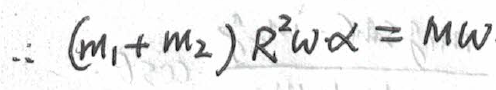 ∴ (m₁ + m₂) R²ω·α = Mω